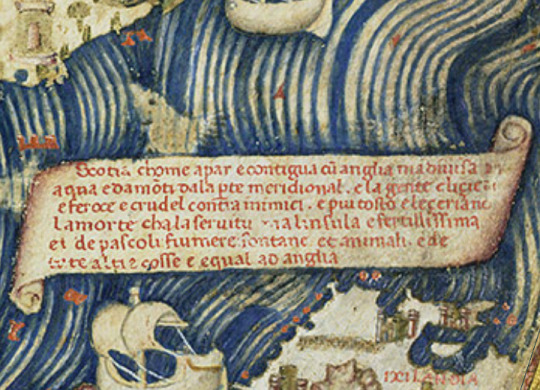 Scotia chome apar e contigua cū anglia ma diuisa
aqua e da mōti dala pte meridional. e la gente
e feroce e crudel contra inimici. e piu tosto
la morte cha la seruitu la insula e fertilissima
de pascoli fiumere fontane et animali. e de
te altre cosse e equal ad anglia